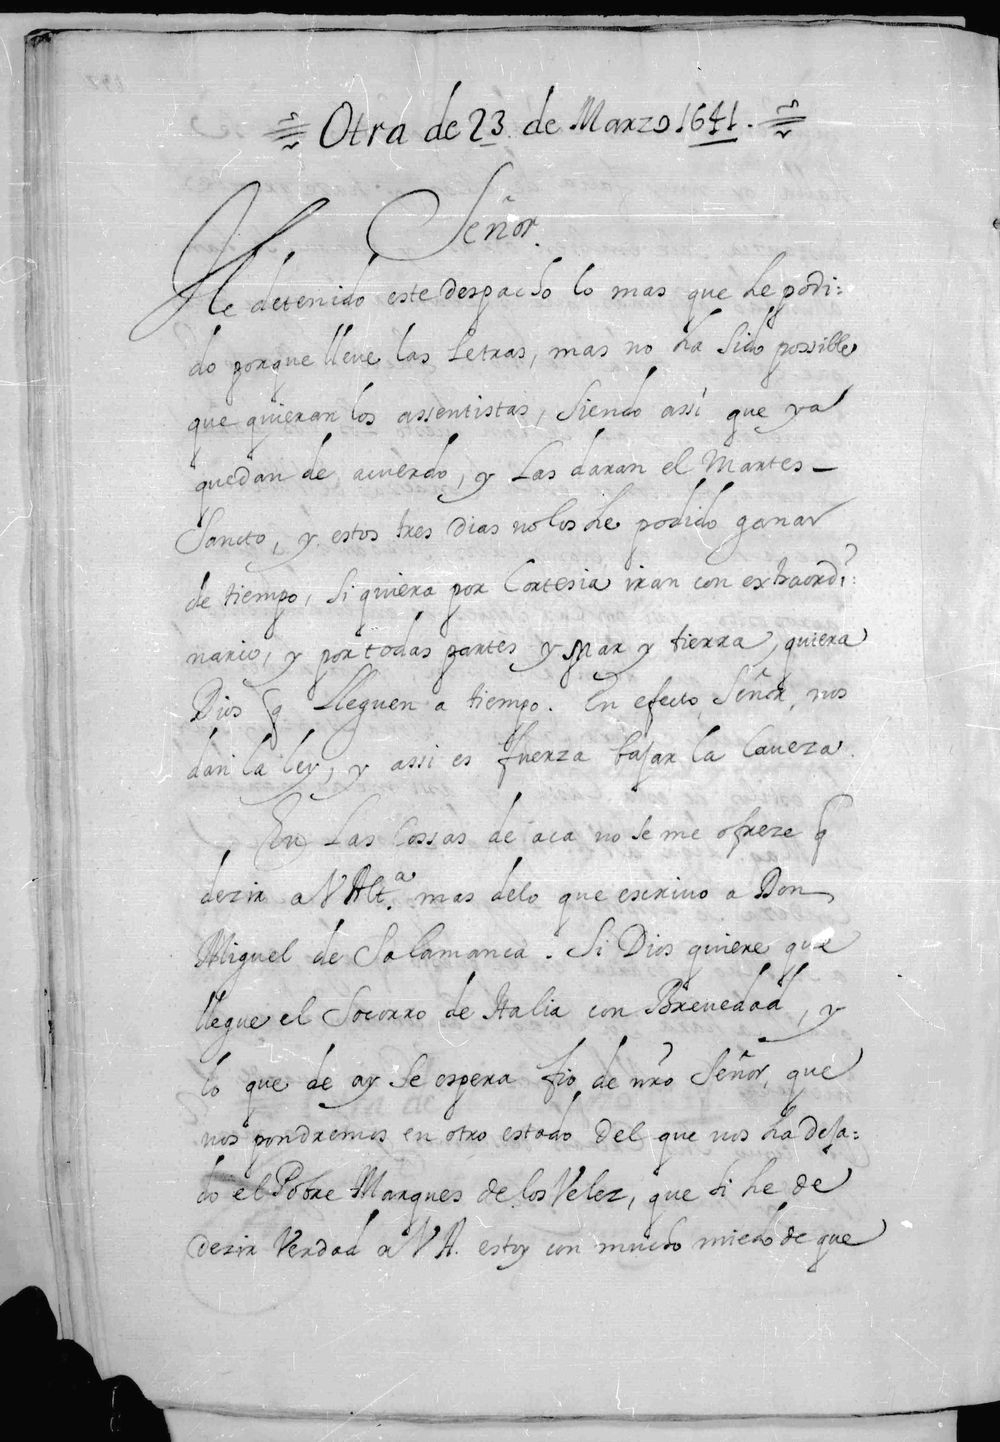 Otra de 23. de Marzo 1641.
Señor.
He detenido este despacho lo mas que he podi:
do porque lleue las Letras, mas no ha sido possible
que quieran los assentistas, siendo assi que ya
quedan de acuerdo, y Las daran el Martes
Sancto, y estos tres dias no los he podido ganar
de tiempo, si quiera por Cortesia iran con extraordi:
nario, y por todas partes y Mar y tierra, quiera
Dios q Lleguen a tiempo. En efecto, Señor, nos
dan la ley, y assi es fuerza bajar la Caueza.
En Las Cossas de aca no se me ofreze q
dezir a V Alt.ª mas de lo que escriuo a Don
Miguel de Salamanca. Si Dios quiere que
llegue el Socorro de Italia con Breuedad, y
lo que de ay se espera fio de nro Señor, que
nos pondremos en otro estado del que nos ha deja:
do el Pobre Marques de los Velez, que si he de
dezir Verdad a V A. estoy con mucho miedo de que